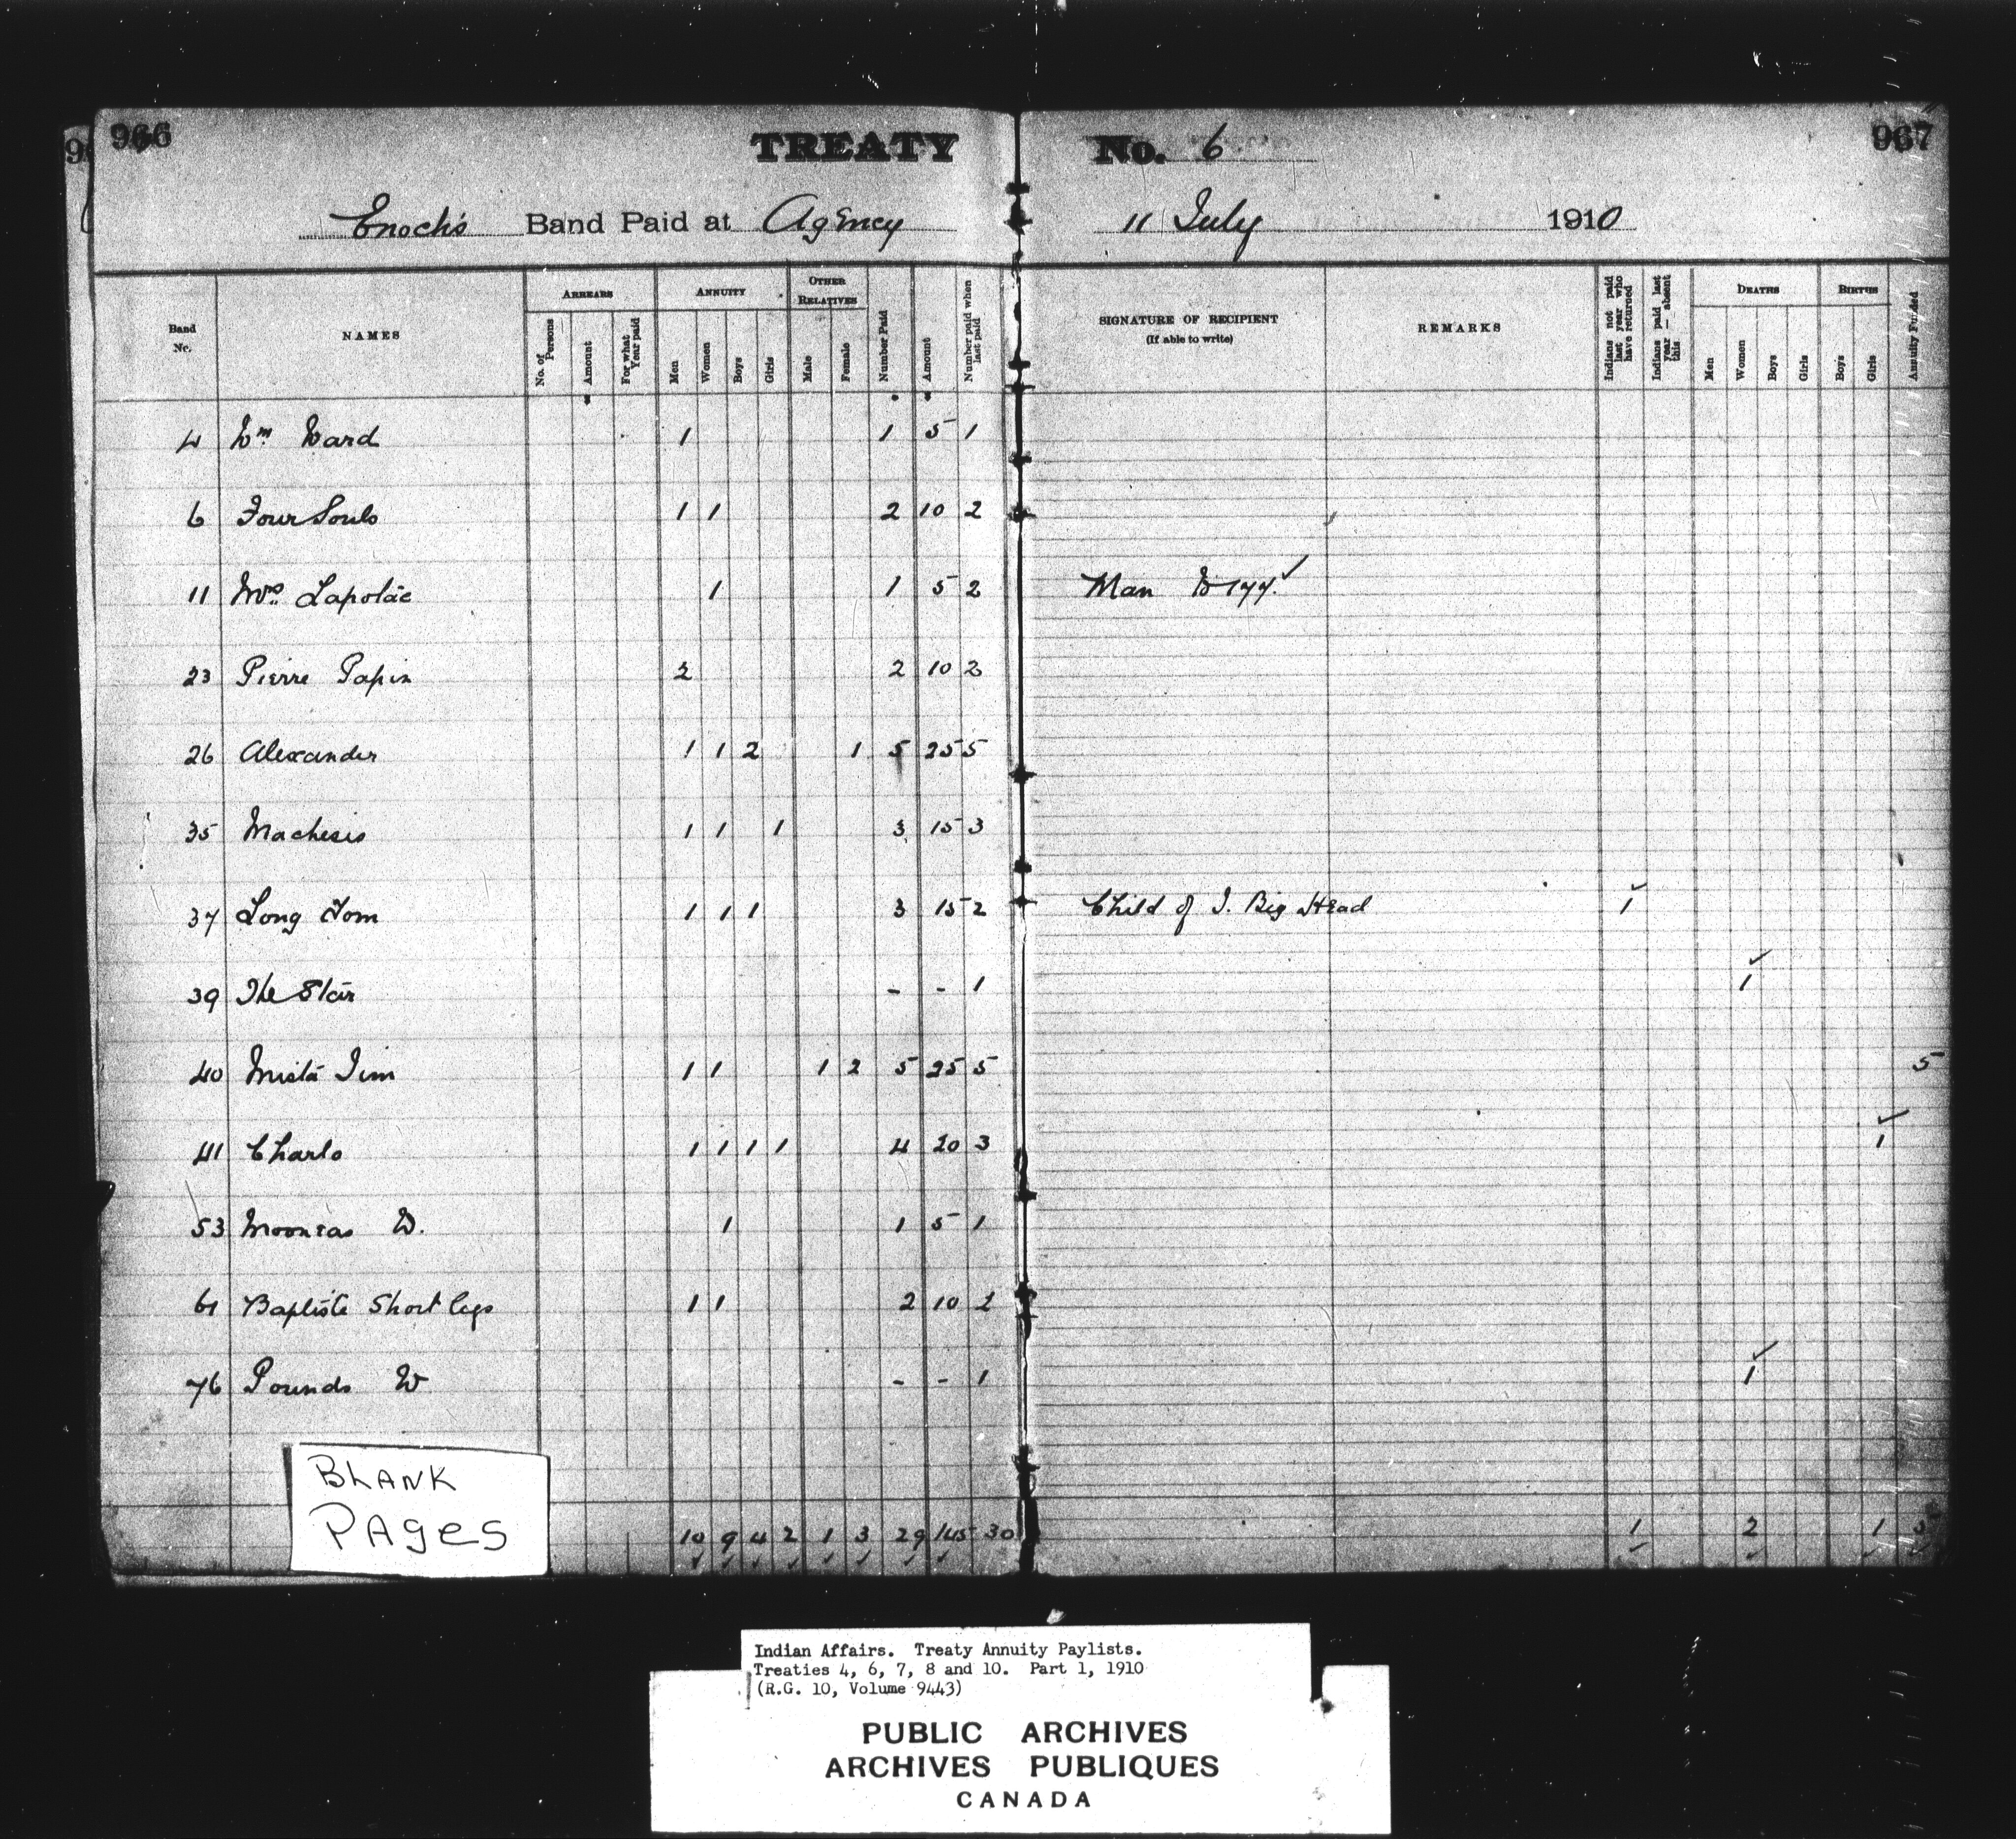 966 TREATY No. 6 967
Enoch's Band Paid at Agency 11 July 1910
Band No.
NAMES
ARREARS
No. of Persons
Amount
For what Year paid
ANNUITY
Men
Women
Boys
Girls
OTHER RELATIVES
Male
Female
Number Paid
Amount
Number paid when last paid
SIGNATURE OF RECIPIENT
(If able to write)
REMARKS
Indians not paid last year who have returned
Indians paid last year — absent this
DEATHS
Men
Women
Boys
Girls
BIRTHS
Boys
Girls
Annuity Funded
4 Wm Ward 1 1 5 1
6 Four Souls 1 1 2 10 2
11 Mrs Lapotac 1 1 5 2 Man to 177. ✓
23 Pierre Papin 2 2 10 2
26 Alexander 1 1 2 1 5 25 5
35 Machesis 1 1 1 3 15 3
37 Long Tom 1 1 1 3 15 2 Child of J. Big Head 1 ✓
39 The Star - - 1 1 ✓
40 Mista Jim 1 1 1 2 5 25 5 5
41 Charlo 1 1 1 1 4 20 3 1 ✓
53 Mooneas W. 1 1 5 1
61 Baptiste Short legs 1 1 2 10 2
76 Pounds W - - 1 1 ✓
10 9 4 2 1 3 29 145 30 1 2 1 5
BLANK
PAges
Indian Affairs. Treaty Annuity Paylists.
Treaties 4, 6, 7, 8 and 10. Part 1, 1910
(R.G. 10, Volume 9443)
PUBLIC ARCHIVES
ARCHIVES PUBLIQUES
CANADA